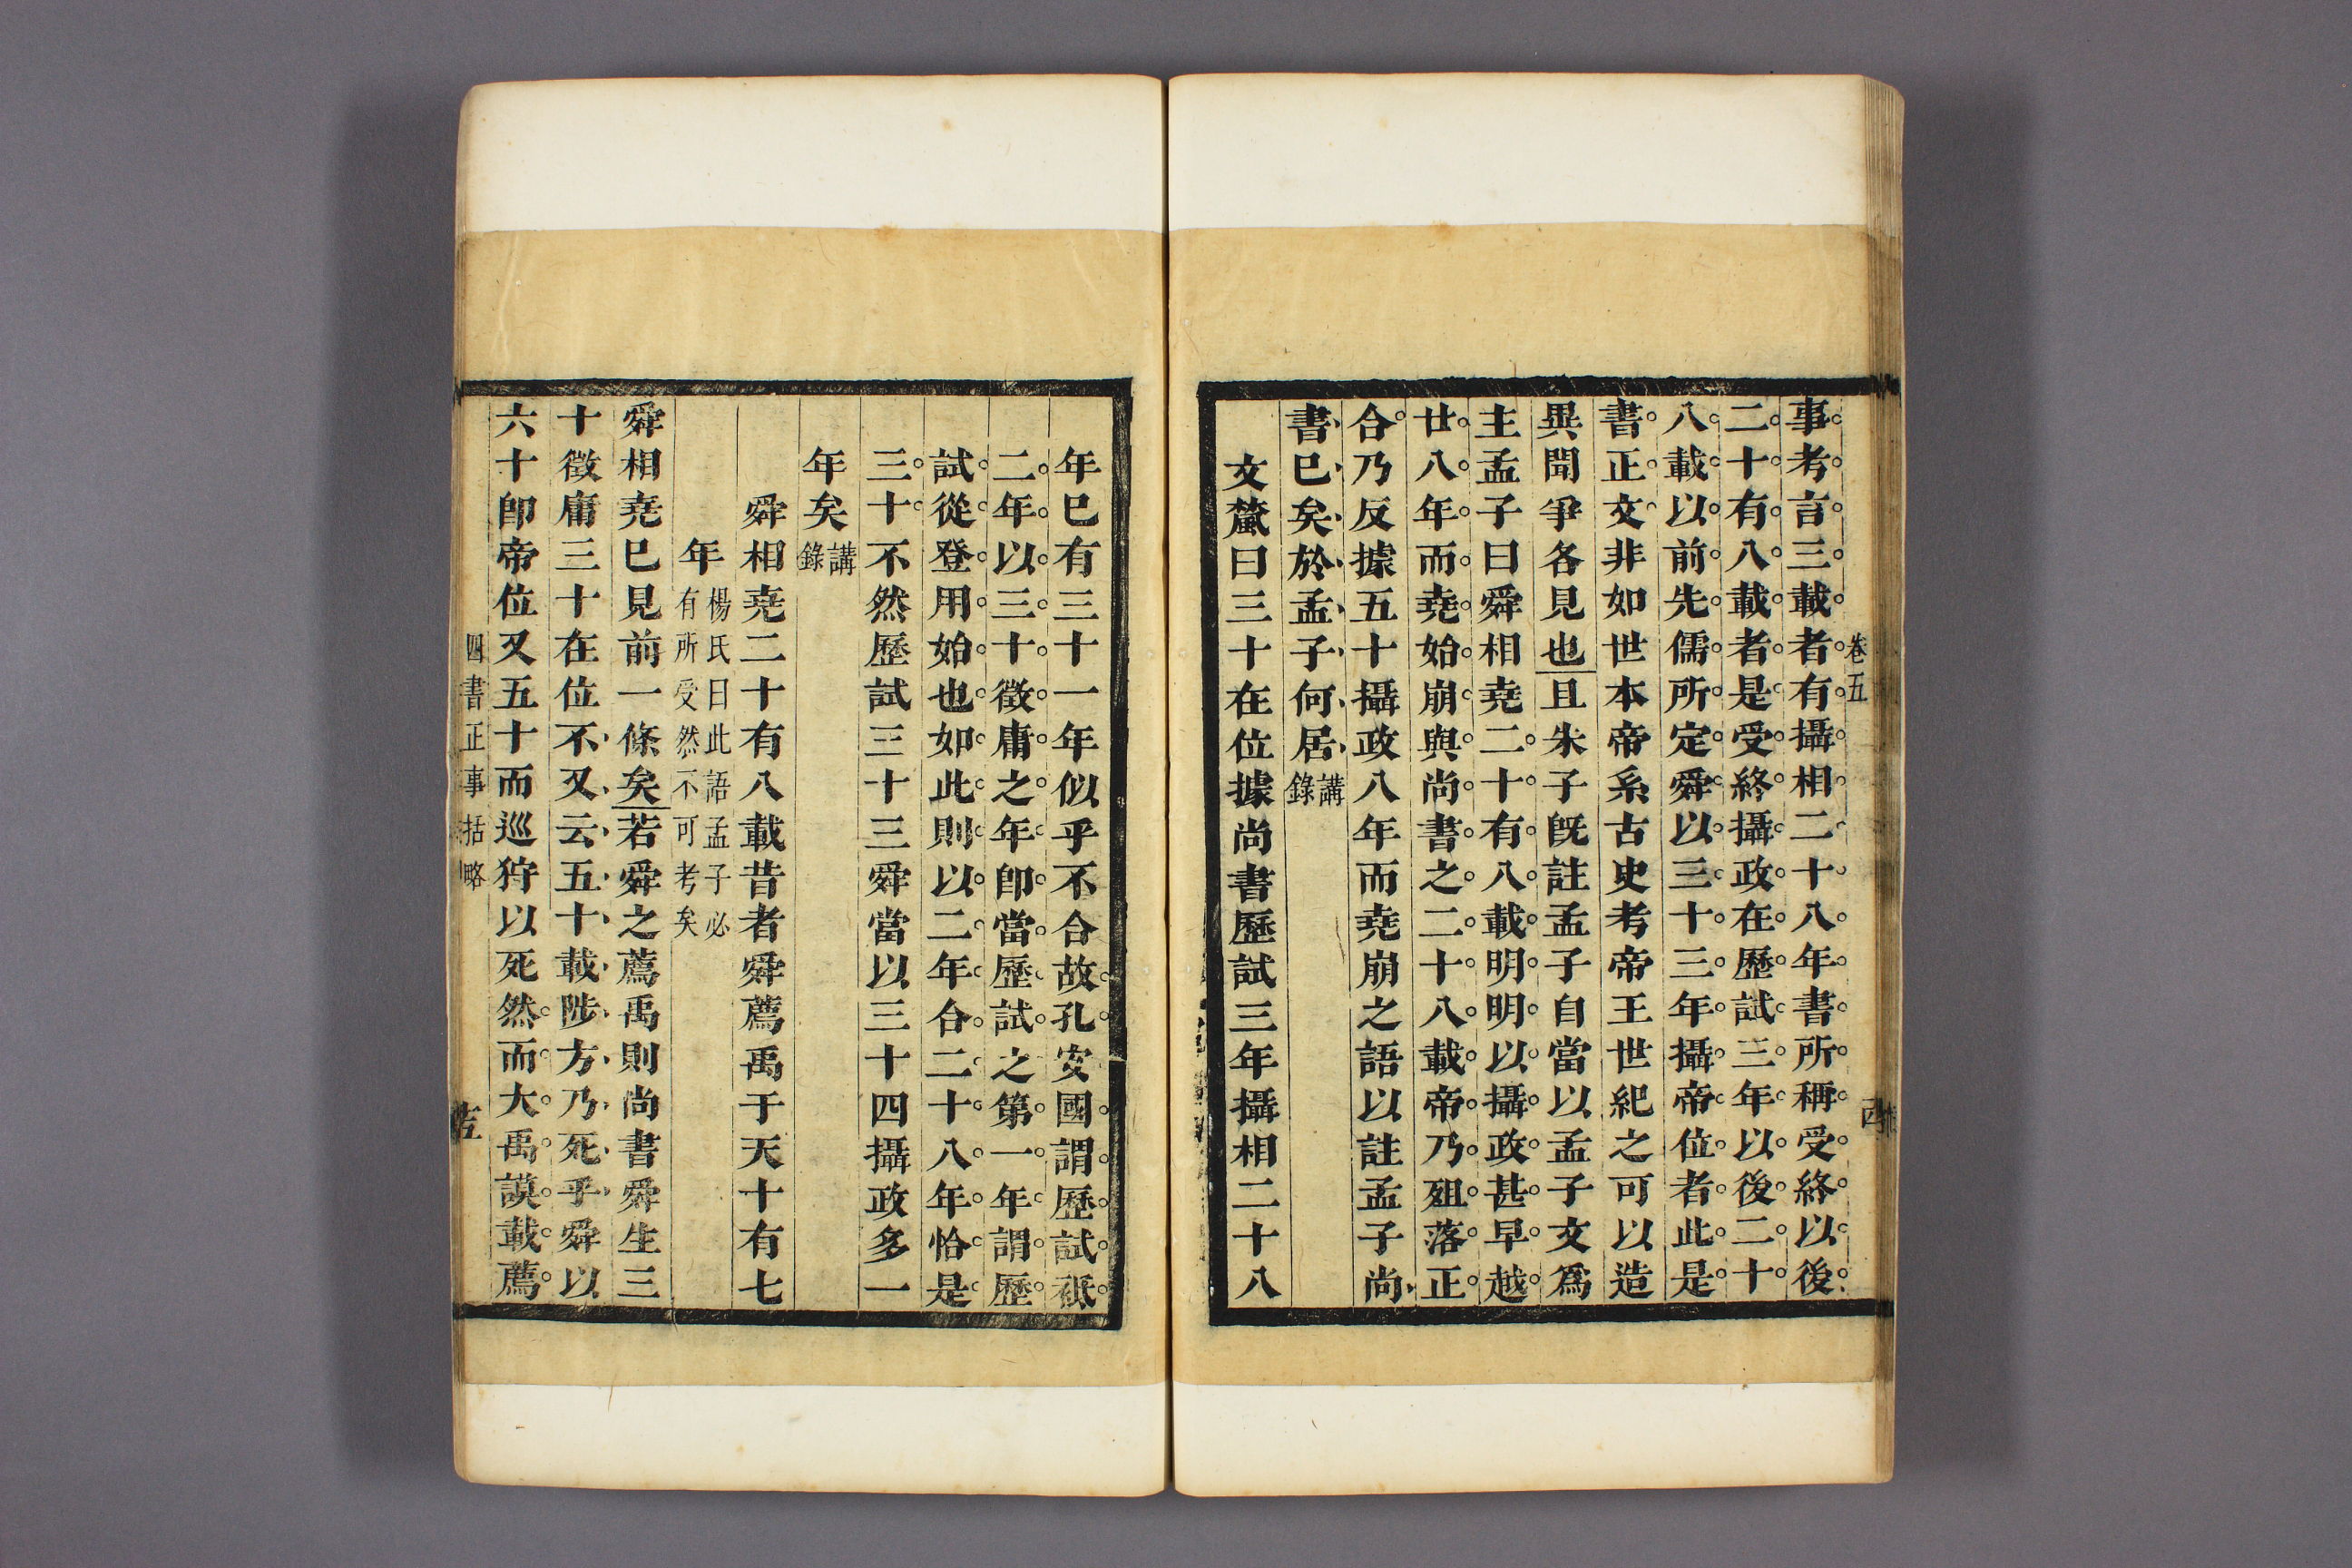 卷五
事考言三載者有攝相二十八年書所稱受終以後
二十有八載者是受終攝政在歷試三年以後二十
八載以前先儒所定舜以三十三年攝帝位者此是
書正文非如世本帝系古史考帝王世紀之可以造
異聞爭各見也且朱子旣註孟子自當以孟子文爲
主孟子曰舜相堯二十有八載明明以攝政甚早越
廿八年而堯始崩與尚書之二十八載帝乃殂落正
合乃反據五十攝政八年而堯崩之語以註孟子尚
書已矣於孟子何居講錄
文虨曰三十在位據尚書歷試三年攝相二十八
年已有三十一年似乎不合故孔安國謂歷試秪
二年以三十徵庸之年卽當歷試之第一年謂歷
試從登用始也如此則以二年合二十八年恰是
三十不然歷試三十三舜當以三十四攝政多一
年矣講錄
舜相堯二十有八載昔者舜薦禹于天十有七
年楊氏曰此語孟子必有所受然不可考矣
舜相堯已見前一條矣若舜之薦禹則尚書舜生三
十徵庸三十在位不又云五十載陟方乃死乎舜以
六十卽帝位又五十而巡狩以死然而大禹謨載薦
四書正事括略